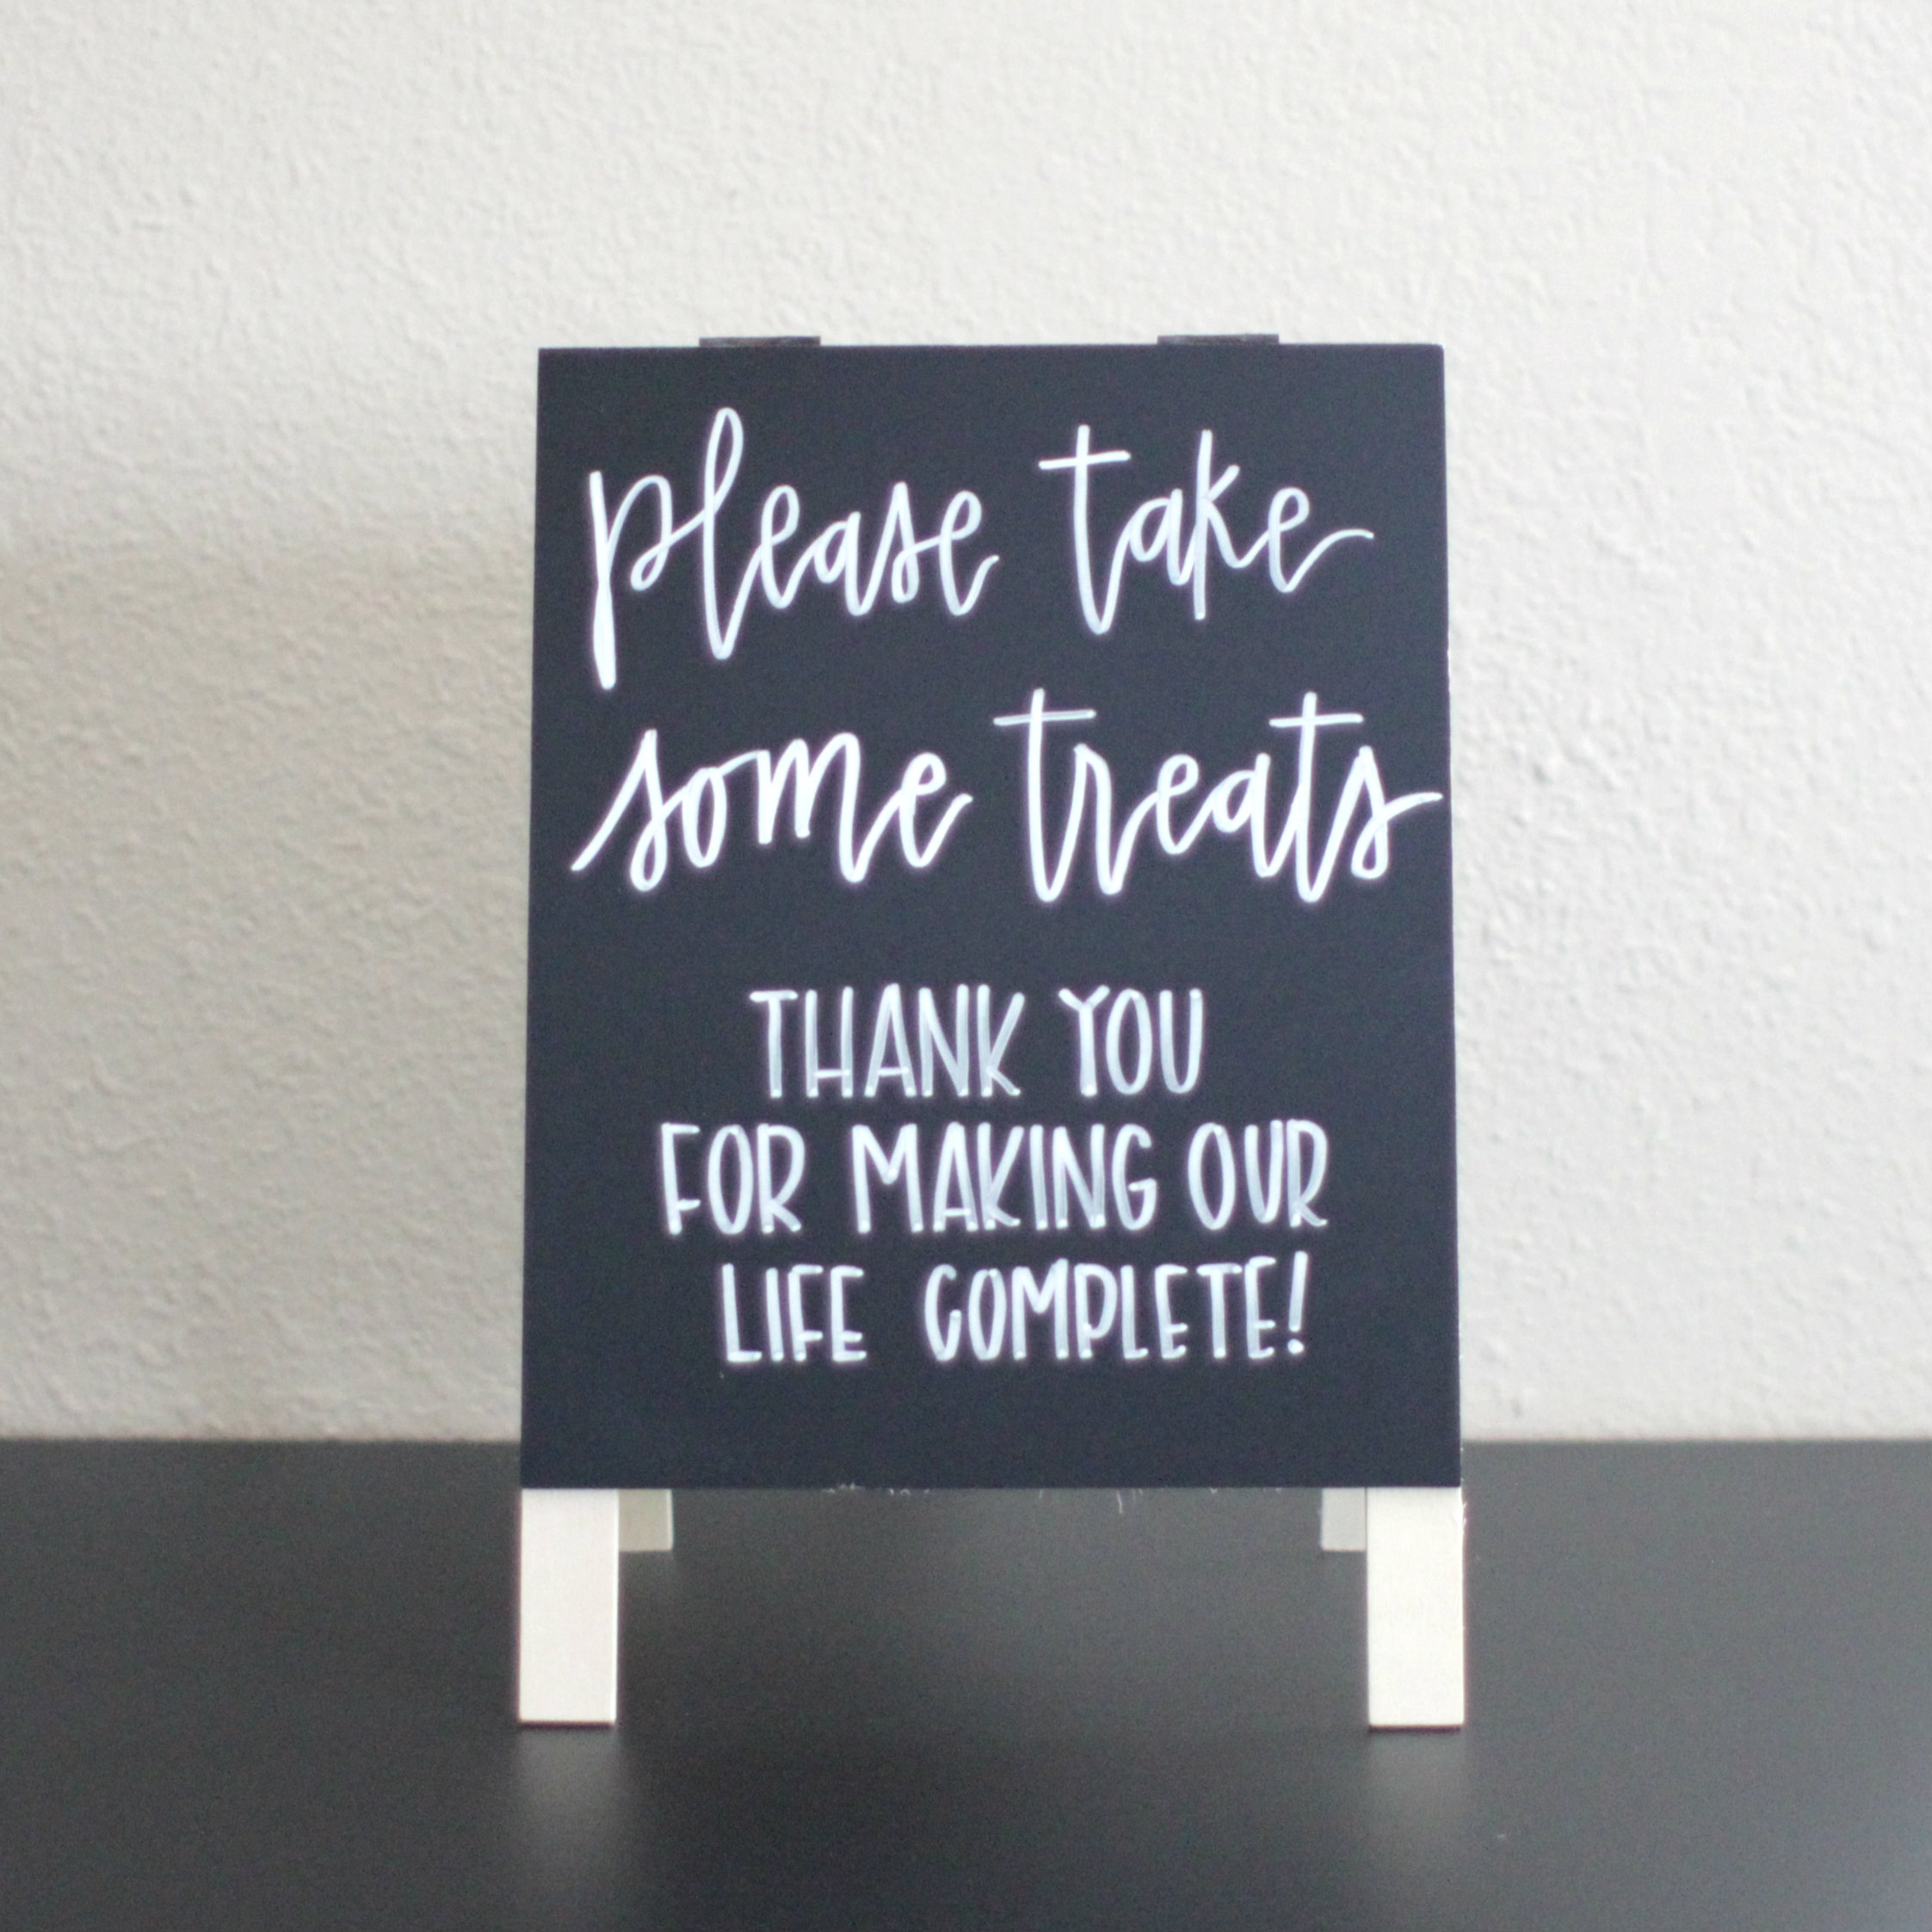 please take
some treats
THANK YOU
FOR MAKING OUR
LIFE COMPLETE!